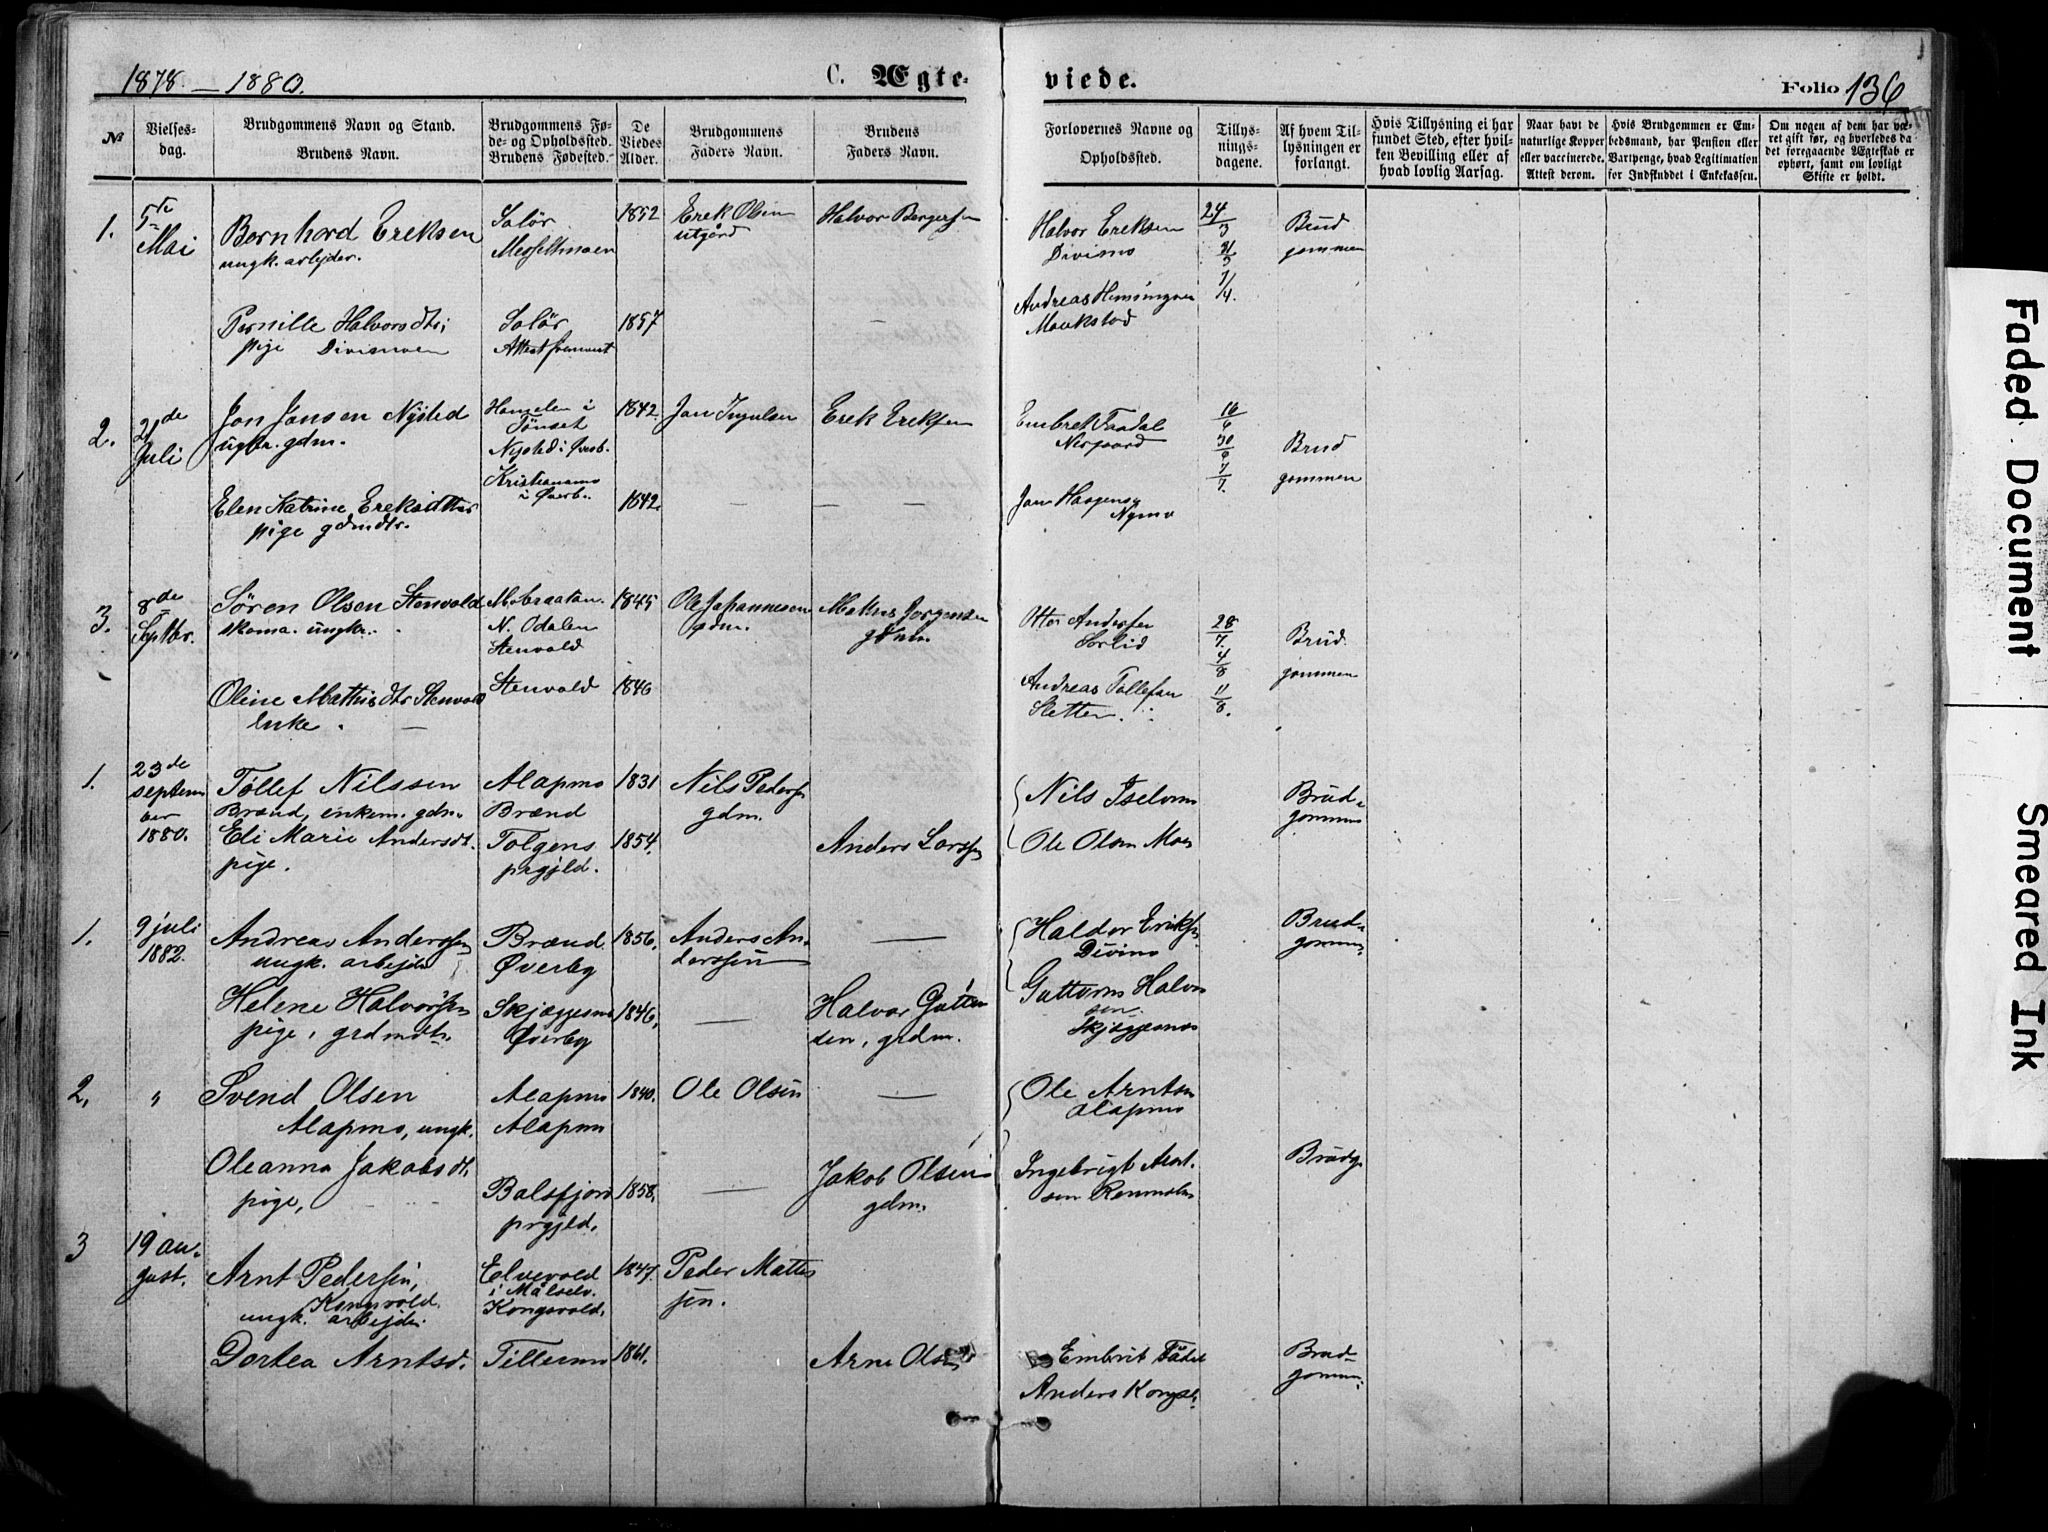 1878. — 1880.
C. Ægteviede.
Folio 136
№
Vielsesdag.
Brudgommens Navn og Stand.
Brudens Navn.
Brudgommens Føde- og Opholdssted.
Brudens Fødested.
De Viedes Alder.
Brudgommens Faders Navn.
Brudens Faders Navn.
Forlovernes Navne og Opholdssted.
Tillysningsdagene.
Af hvem Tillysningen er forlangt.
Hvis Tillysning ei har fundet Sted, efter hvilken Bevilling eller af hvad lovlig Aarsag.
Naar havt de naturlige Kopper eller vaccinerede. Attest derom.
Hvis Brudgommen er Embedsmand, har Pension eller Vartpenge, hvad Legitimation for Indskuddet i Enkekassen.
Om nogen af dem har været gift før, og hvorledes da det foregaaende Ægteskab er ophørt, samt om lovligt Skifte er holdt.
1. 5te Mai
Bernhard Ereksen
ungk. arbejder.
Solør
1852
Erek Olsen
utgård
Halvor Bergersen
Halvor Ereksen
Divimo
24/3 31/3 7/4.
Brudgommen
Pernille Halvorsdtr;
pige Divimoen
Solør
Attest fremvist
1857
—
Andreas
Moukstad
2. 21de Juli
Jon Jonsen Nysted
ugkr. gdm.
Tønset
Nysted i Øverb.
1842.
Jon Ingulsen
Erek Ereksen
Embret Faadal
Nergaard
16/6 30/6 7/7.
Brudgommen
Elen Katrine Ereksdtter
pige gdmdtr.
Kristianamo
i Øverb.
1842.
— — —
Jon Haagensen
Nymo
3. 8de Septbr.
Sören Olsen Stenvold
skoma. ungkr.
Mobraatan
N. Odalen
Stenvold
1845
Ole Johannesen
gdm.
Mathis Jorgensen
gdm.
Otter Andersen
Sorlid
28/7. 4/8 11/8.
Brudgommen
Oline Mathisdtr Stenvold
Enke. —
Stenvold
1846
Andreas Tollefsen
Sletten.
1. 23de september 1880.
Tollef Nilssen
Brænd, enkem. gdm.
Alapmo
Brænd
1831
Nils Peders.
gdm.
Nils Iselvmo
Brudgommen
Eli Marie Andersdt.
pige.
Tolgens
prgjld.
1854.
Anders Larssen
Ole Olsen Moen
1. 9 juli 1882.
Andreas Anderssen
ungk. arbejder
Brænd
Øverby
1856.
Anders Anderssen
—
Haldor Eriks.
Divimo
Brudgommen
Helene Halvorsen
pige, grdmdtr.
Skjæggesnes
Øverby
1846.
—
Halvor Guttormsen, grdm.
Guttorm Halvorsen
Skjæggesnes
2. "
Svend Olsen
Alapmo, ungk.
Alapmo
Alapmo
1840.
Ole Olsen
—
Ole Arntsen
Alapmo
Oleanna Jakobsdt.
pige,
Balsfjord
prgjld.
1858.
—
Jakob Olsen
gdm.
Ingebrigt Arntsen
Brudg.
3 19 august.
Arnt Pedersen,
Kongsvold.
ungk. arbejder.
Elvevold
i Målselv.
Kongsvold.
1847.
Peder Mattessen.
Dortea Arntsd.
Tillermo
1861.
Arne Olsen
Embrit Fådal
Anders Kongsv.
Brudgommen
Faded Document
Smeared Ink